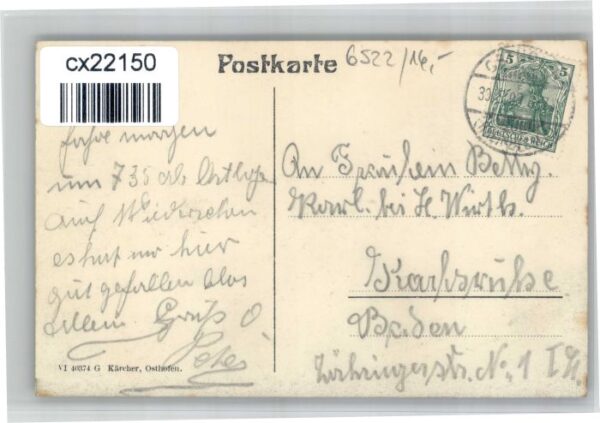 cx22150
Postkarte
6522/14,-
5
DEUTSCHES REICH
fahre morgen
um 7 35 ab Osthofen
auf Wiedersehen
es hat mir hier
gut gefallen
Gruß O.
Peter
An Fräulein Betty
Karl. bei H. Wirth.
Karlsruhe
Baden
Zähringerstr. No. 1
VI 40374 G Kärcher, Osthofen.